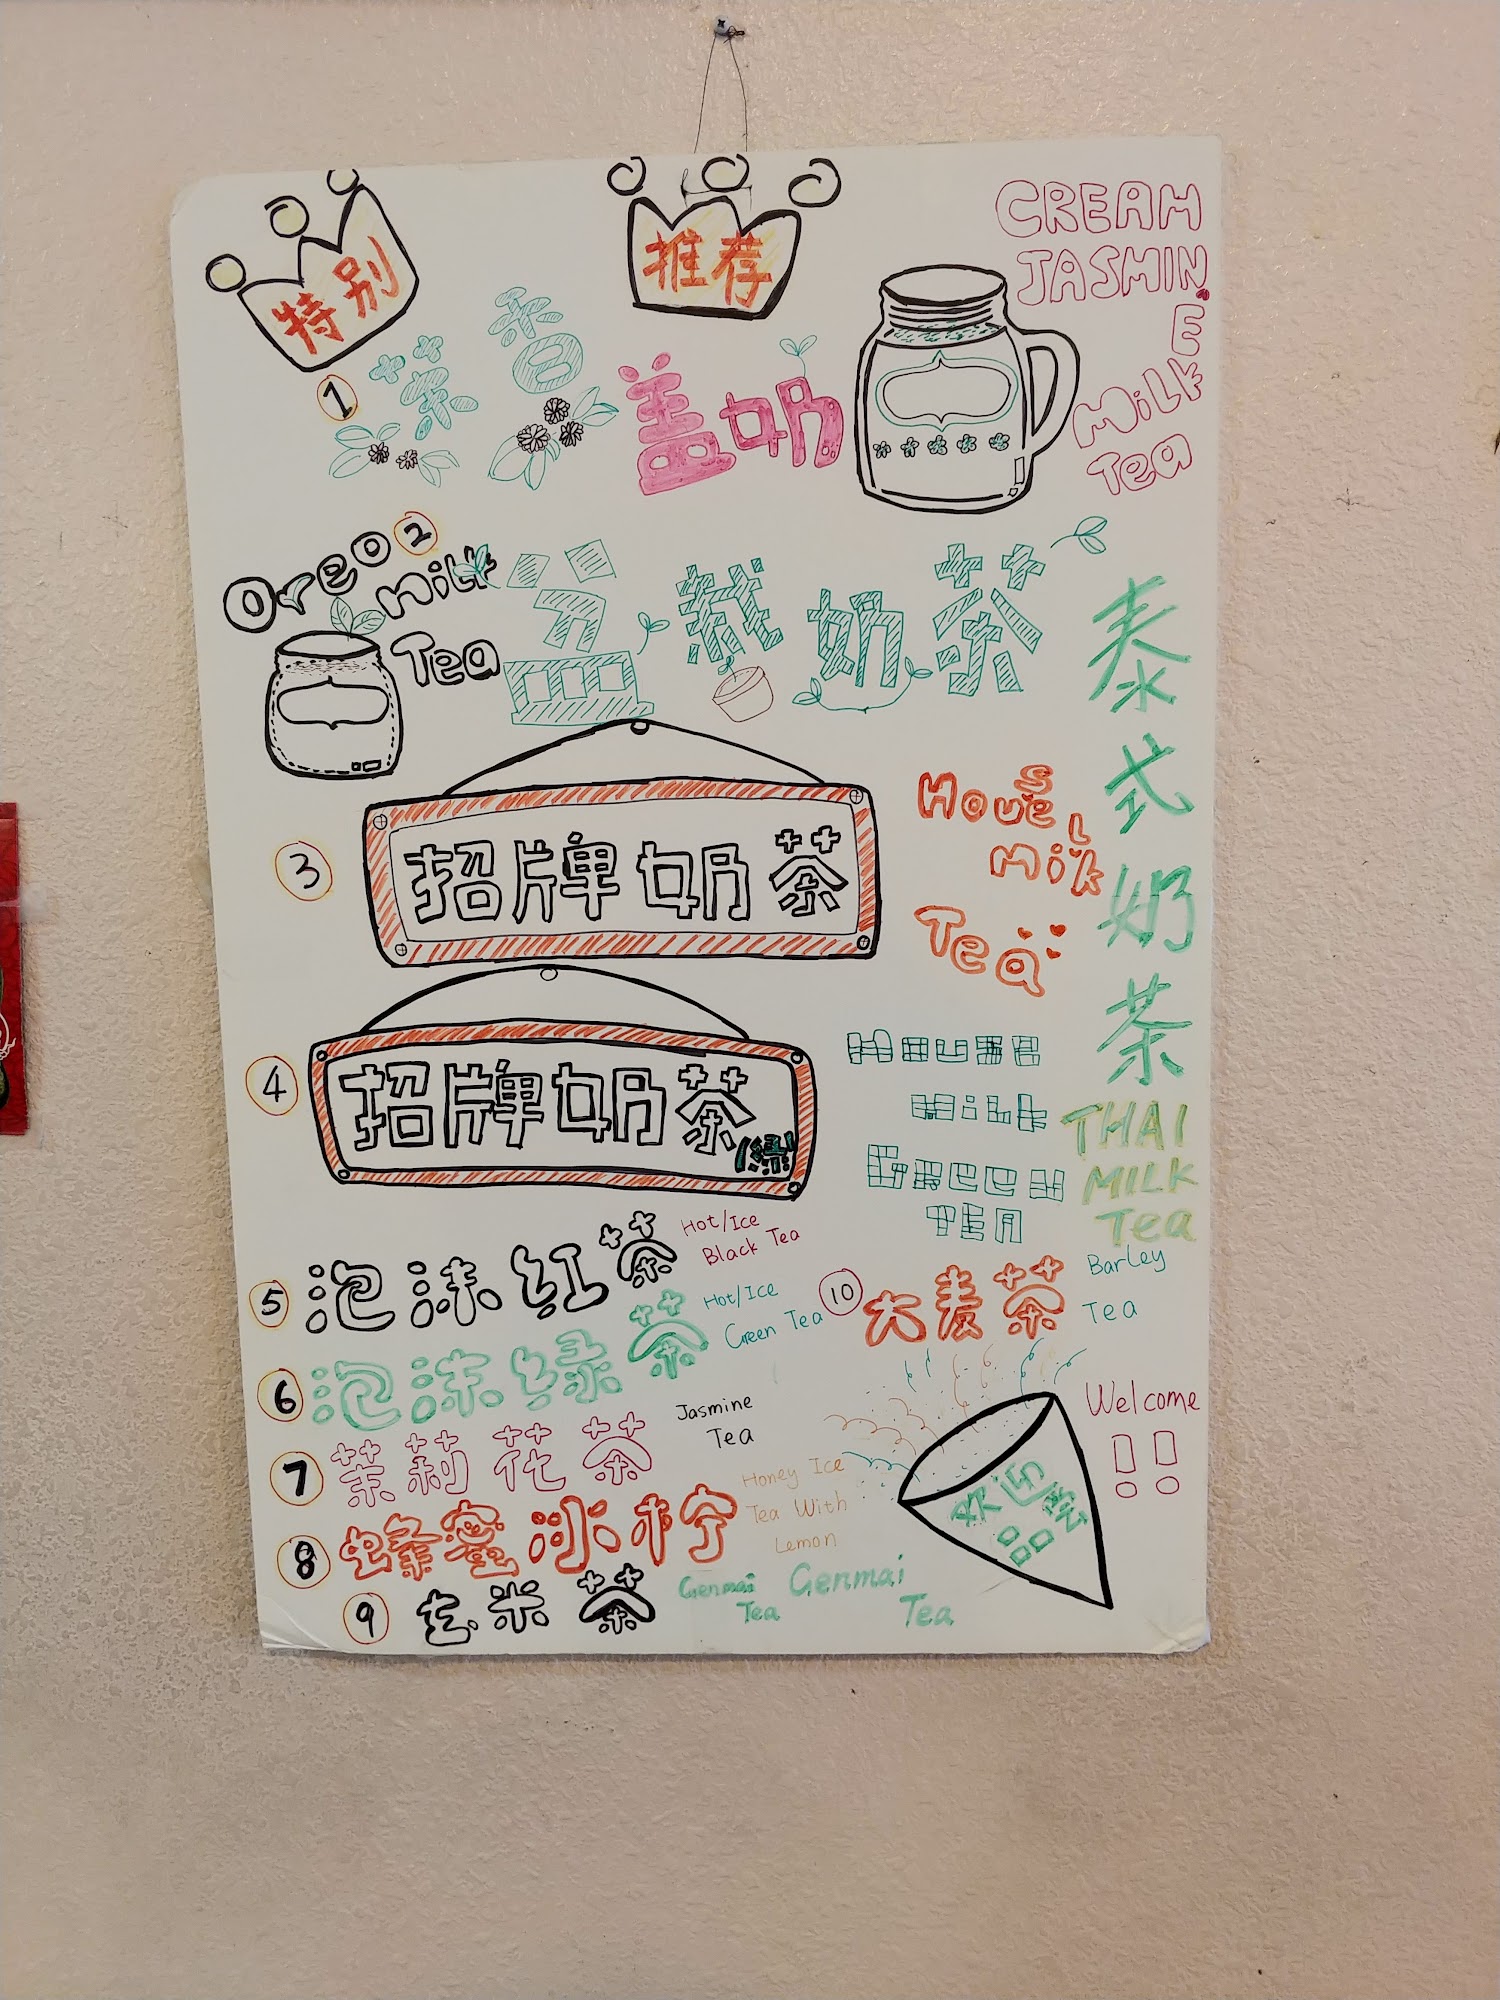 特别
推荐
1 茶香盖奶
CREAM
JASMIN
E
MiLk
Tea
Oreo
milk
Tea
2 盆栽奶茶
泰式奶茶
THAI
MILK
Tea
3 招牌奶茶
House
Milk
Tea
4 招牌奶茶(绿)
House
Milk
Green
TEA
5 泡沫红茶
Hot/Ice
Black Tea
6 泡沫绿茶
Hot/Ice
Green Tea
7 茉莉花茶
Jasmine
Tea
8 蜂蜜冰柠
Honey Ice
Tea With
Lemon
9 玄米茶
Genmai
Tea
Genmai
Tea
10 大麦茶
Barley
Tea
欢迎
Welcome
!!